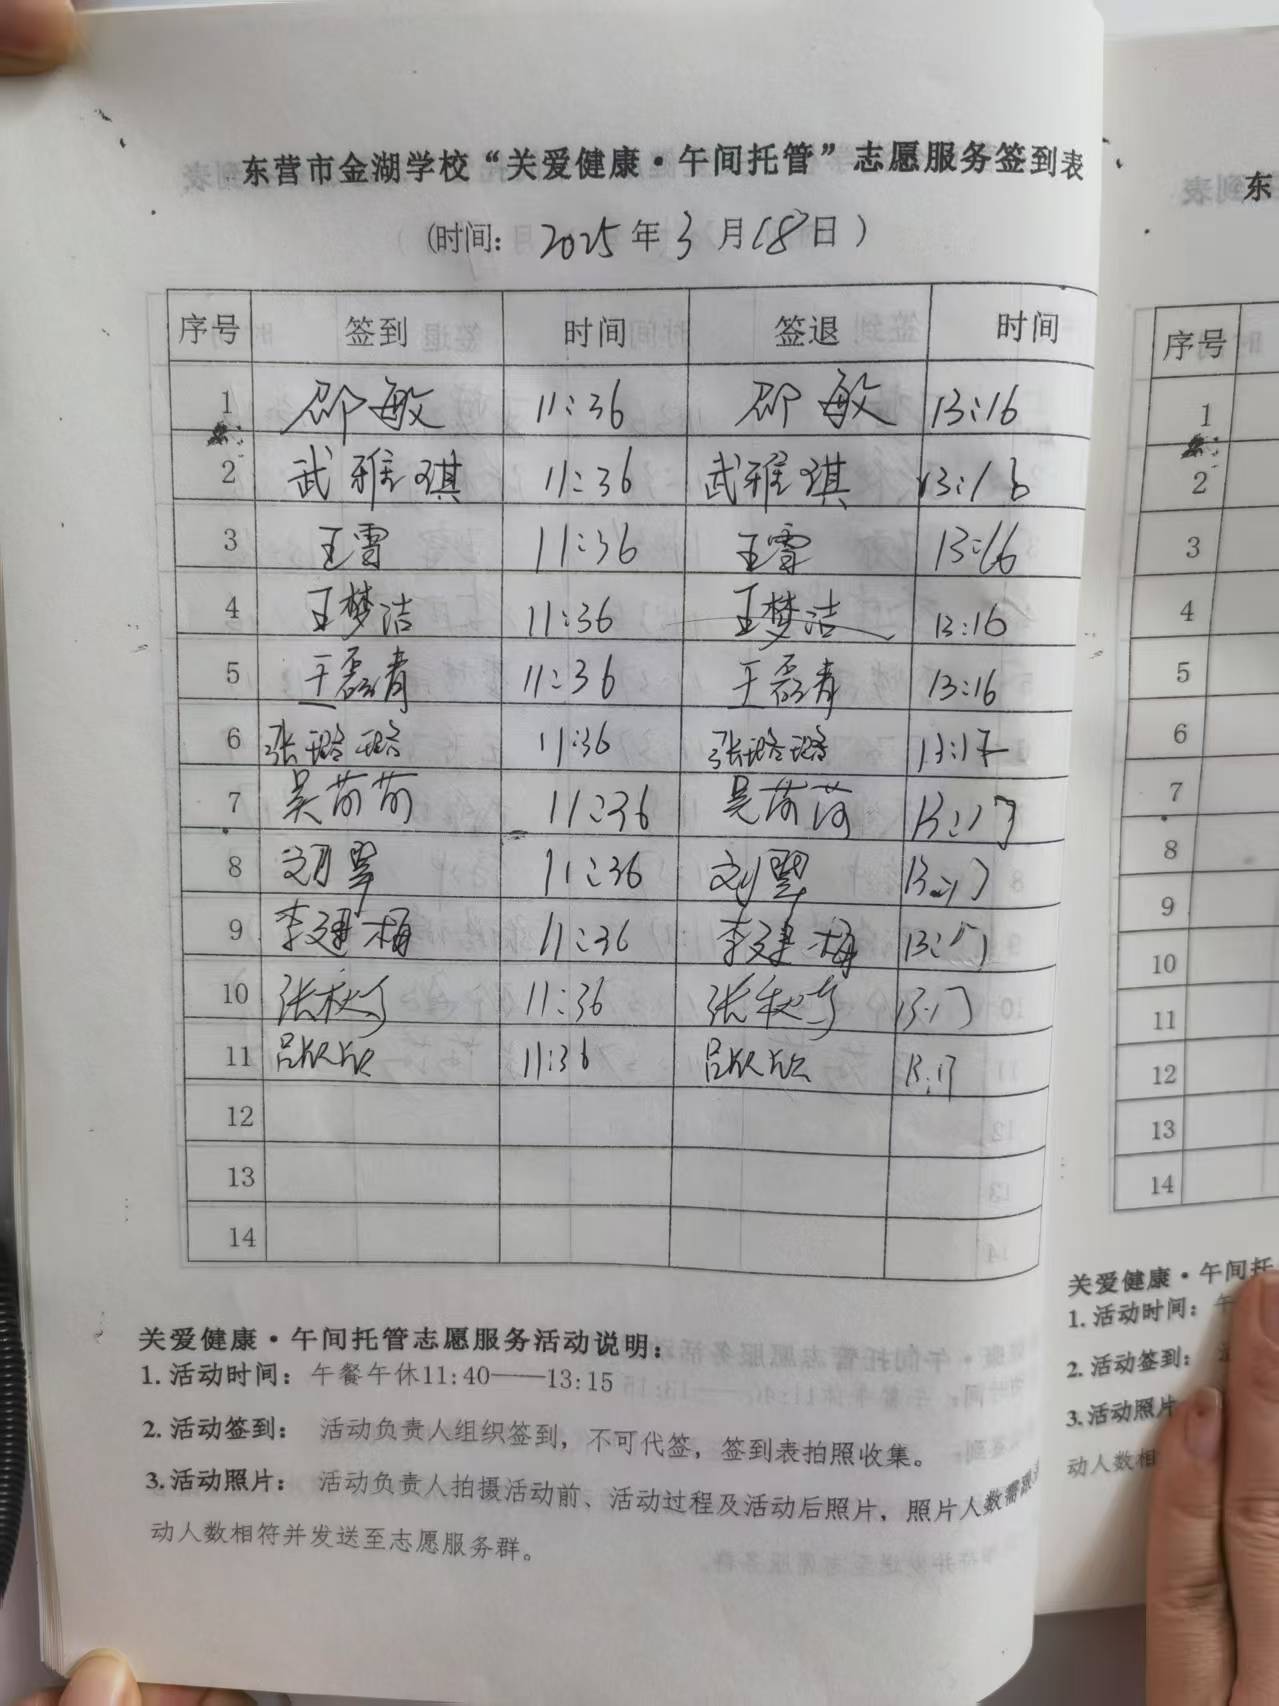 东营市金湖学校“关爱健康·午间托管”志愿服务签到表
(时间: 2025年3月18日)
序号 签到 时间 签退 时间
1 邵敏 11:36 邵敏 13:16
2 武雅琪 11:36 武雅琪 13:16
3 王雪 11:36 王雪 13:16
4 王梦洁 11:36 王梦洁 13:16
5 王磊青 11:36 王磊青 13:16
6 张璐璐 11:36 张璐璐 13:17
7 吴荷荷 11:36 吴荷荷 13:17
8 刘翠 11:36 刘翠 13:17
9 李建梅 11:36 李建梅 13:17
10 张秋 11:36 张秋 13:17
11 吕欣欣 11:36 吕欣欣 13:17
12
13
14
关爱健康·午间托管志愿服务活动说明:
1.活动时间: 午餐午休11:40——13:15
2.活动签到: 活动负责人组织签到，不可代签，签到表拍照收集。
3.活动照片: 活动负责人拍摄活动前、活动过程及活动后照片，照片人数需跟
动人数相符并发送至志愿服务群。
东
序号
1
2
3
4
5
6
7
8
9
10
11
12
13
14
关爱健康·午间托
1.活动时间: 午
2.活动签到:
3.活动照片
动人数相